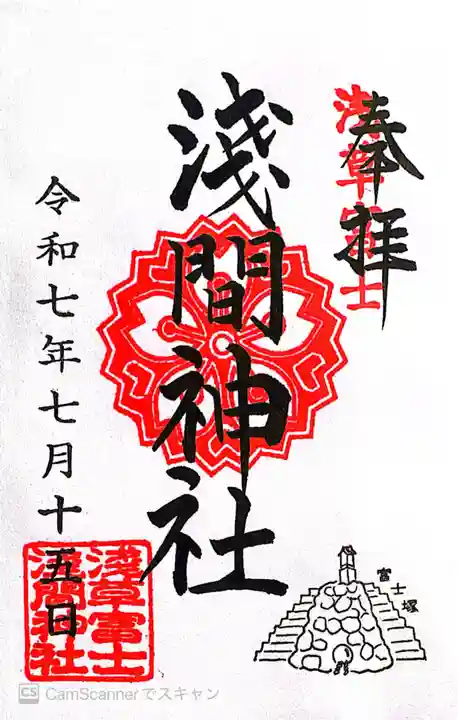 奉拝
浅草富士
淺間神社
令和七年七月十五日
淺草富士
浅間神社
富士塚
CS CamScannerでスキャン